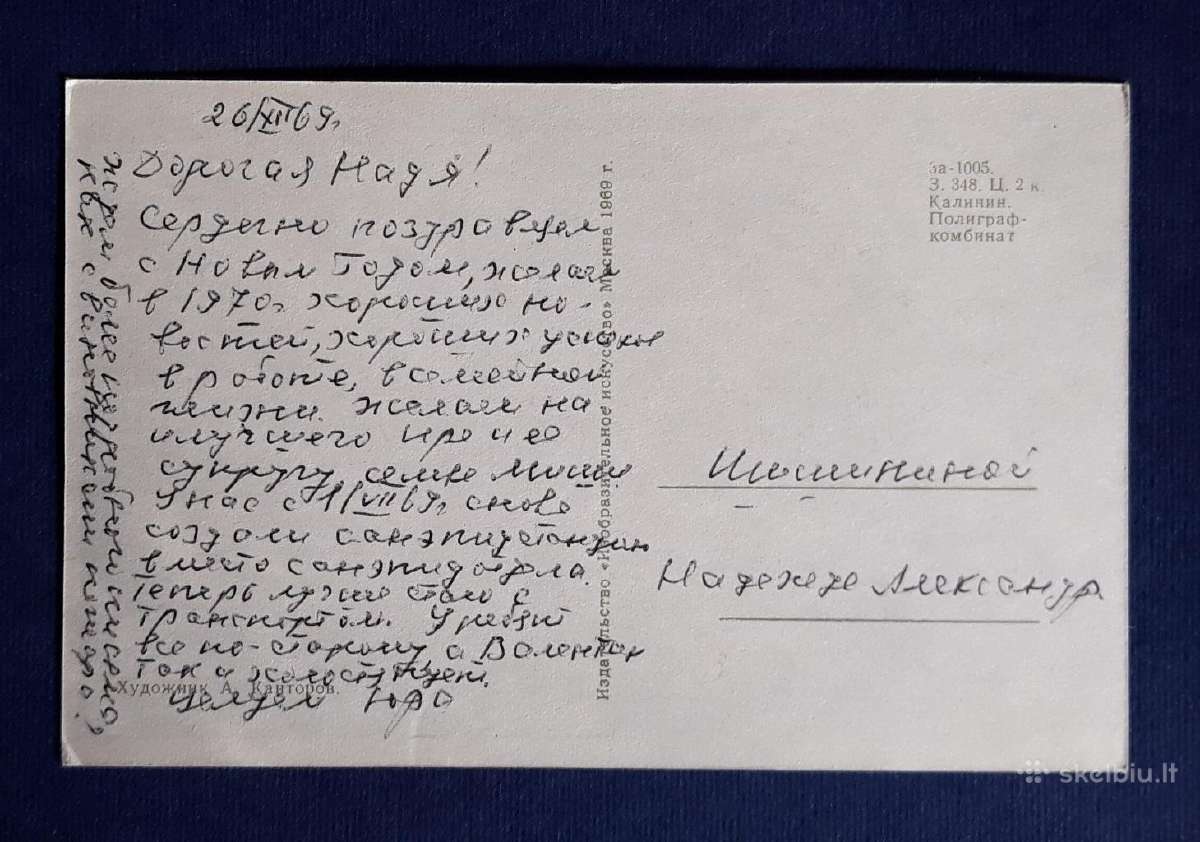 26/XII 69г.
Дорогая Надя!
Сердечно поздравляем
с Новым Годом, желаем
в 1970г. хороших но-
востей, хороших успехов
в работе, в семейной
жизни. Желаем на
илучшего про и ее
супругу, семье Миши
У нас с 1/VII 69г. снова
создали санэпидстанцию
вместо санэпидотдела.
Теперь лучше стало с
транспортом. У ребят
все по-старому, а Валентин
так и холостует.
Целуем Юра
Ждем более
письма,
как с
Художник А. Канторов.
Издательство «Изобразительное искусство» Москва 1969 г.
За-1005.
З. 348. Ц. 2 к.
Калинин.
Полиграф-
комбинат
Шишининой
Надежде Александр
skelbiu.lt